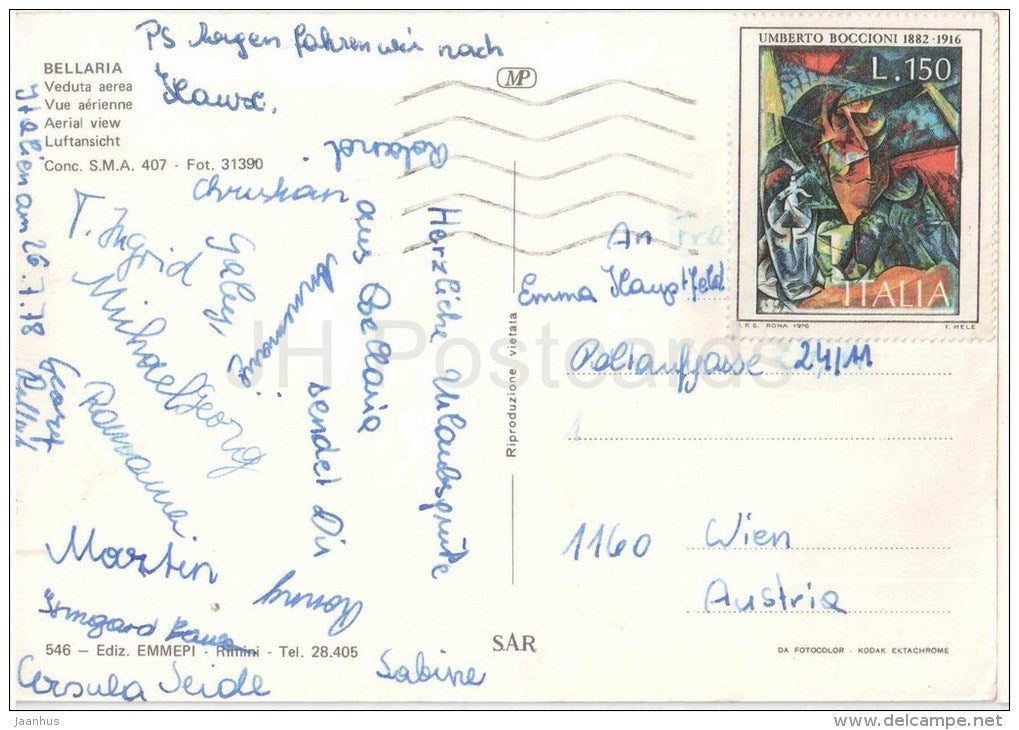 PS Morgen fahren wir nach
Hause.
BELLARIA
Veduta aerea
Vue aérienne
Aerial view
Luftansicht
Conc. S.M.A. 407 - Fot. 31390
MP
UMBERTO BOCCIONI 1882-1916
L.150
ITALIA
I.P.S. ROMA 1976
T. HELE
Italien am 26.7.78
Herzliche Urlaubsgrüße
aus Bellaria
sendet Dir
Roland
Christian
Gaby
Annemarie
T. Ingrid
Georg
Martin
Romy
Irmgard
Ursula Seide
Sabine
An
Emma Hauptfeld
24/11
1160 Wien
Austria
Riproduzione vietata
546 - Ediz. EMMEPI - Rimini - Tel. 28.405
SAR
DA FOTOCOLOR - KODAK EKTACHROME
JH Postcards
jaanhus
www.delcampe.net